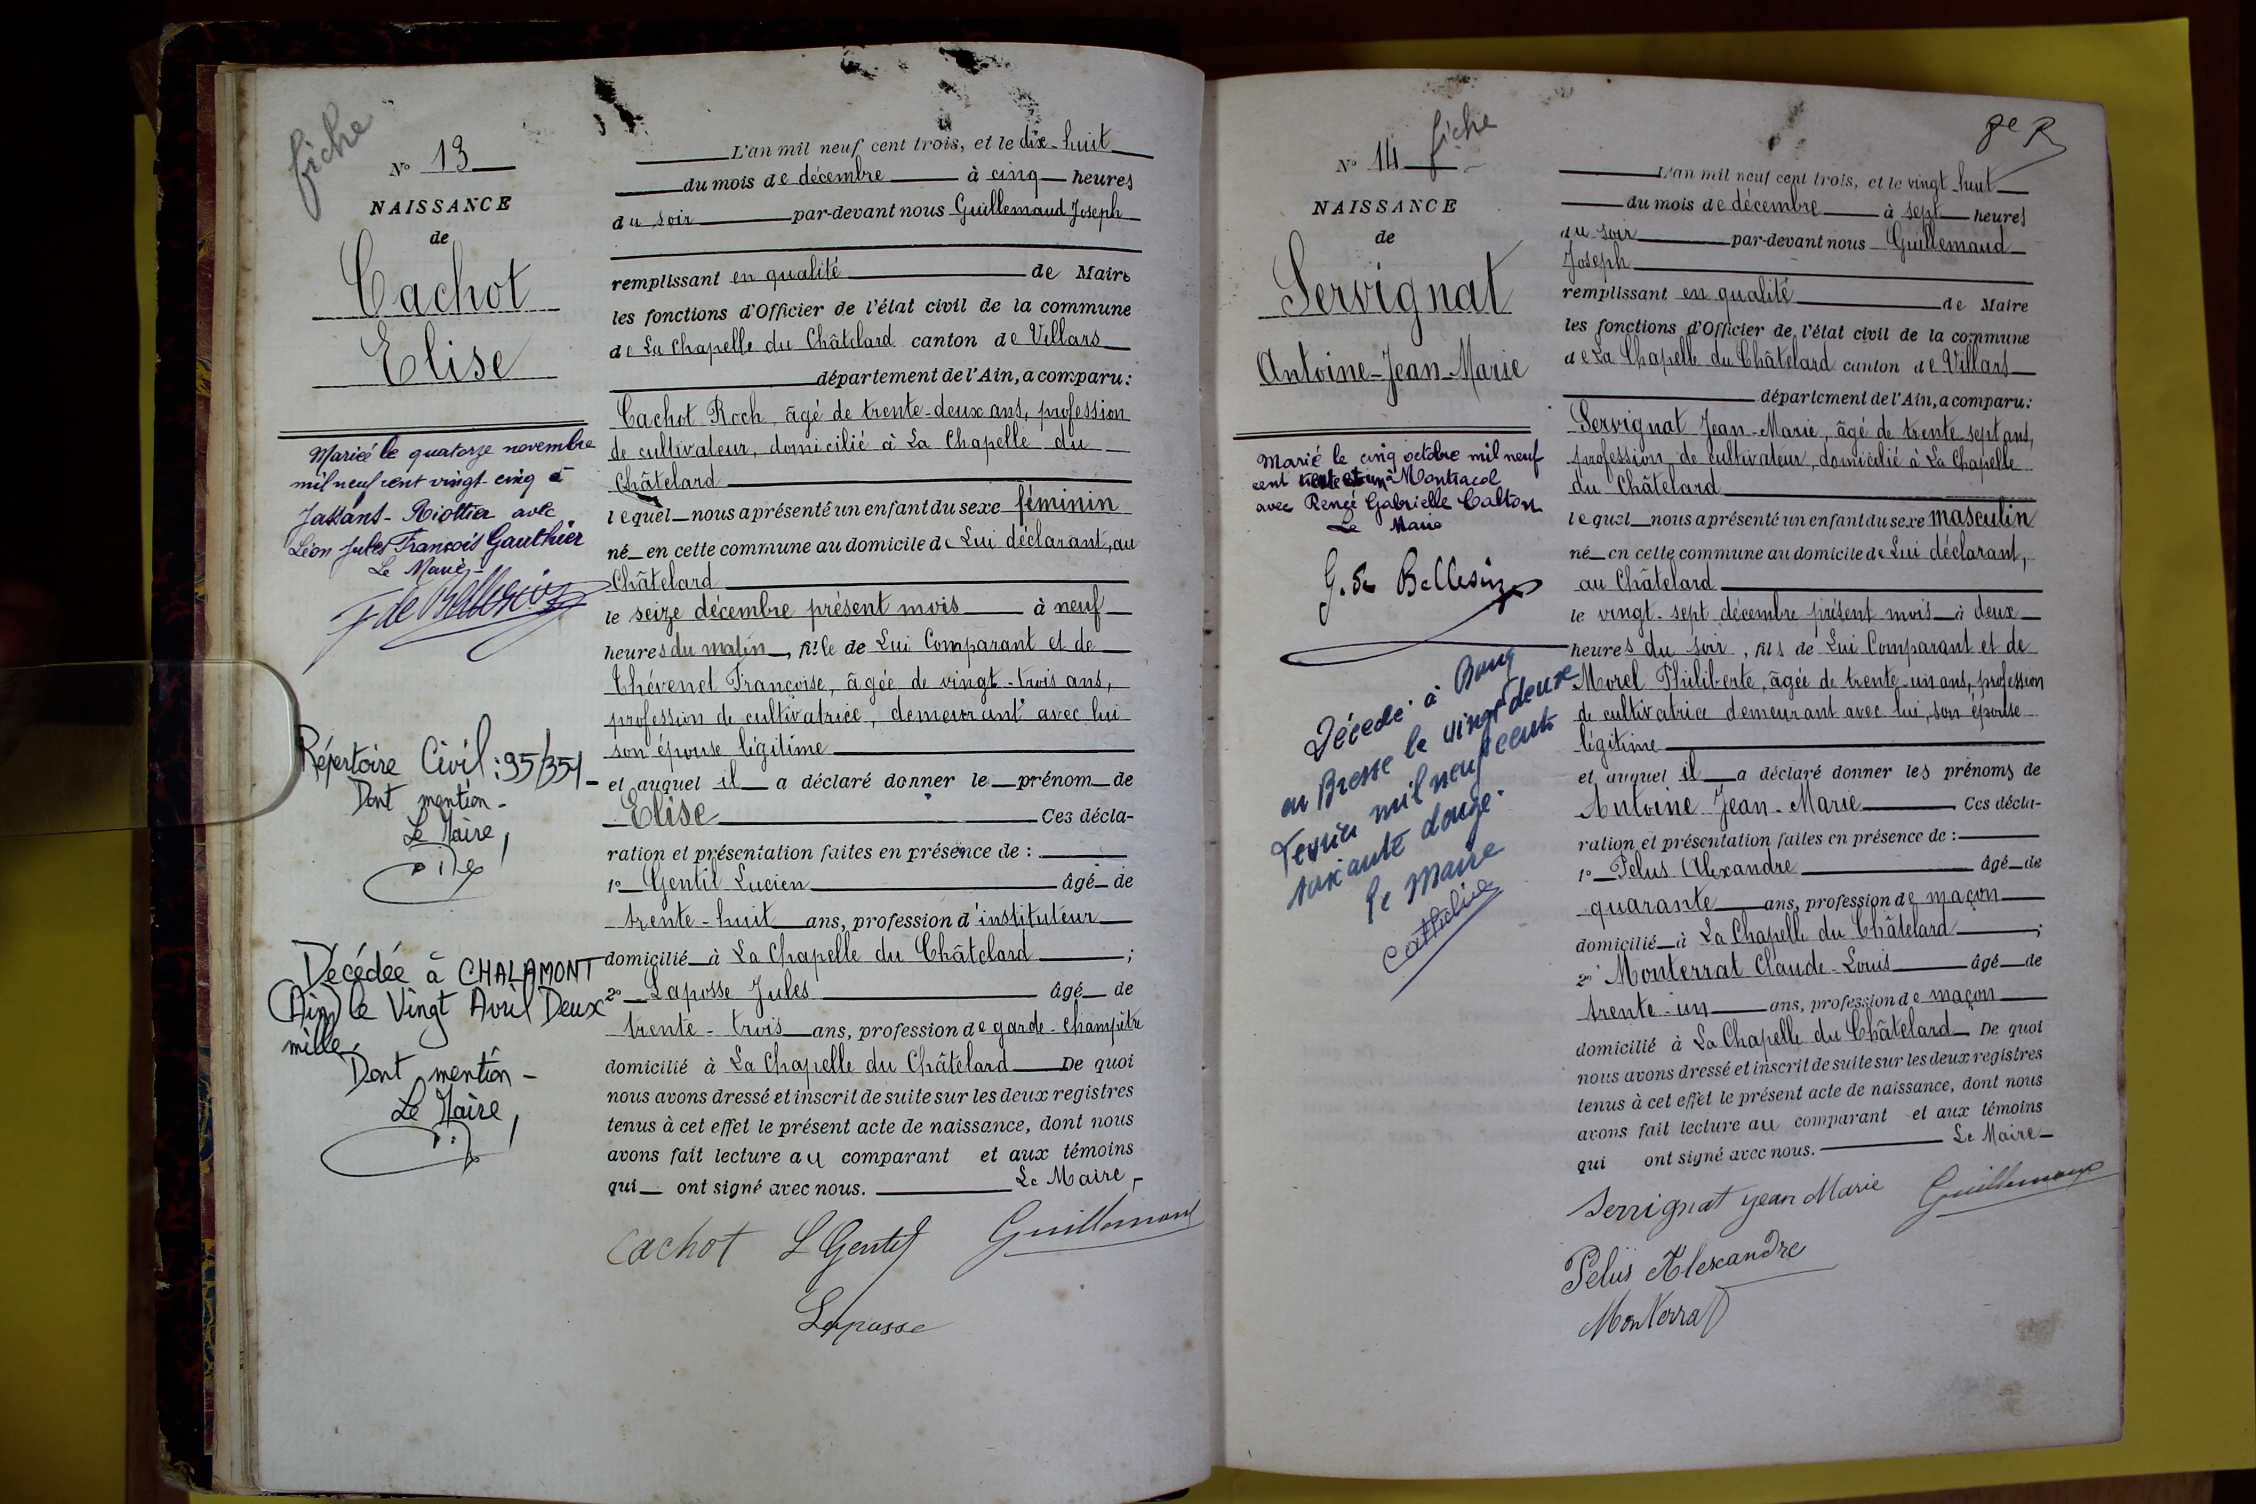 fiche
N° 13
NAISSANCE
de
Cachot
Elise
Mariée le quatorze novembre
mil neuf cent vingt-cinq à
Jassans-Riottier avec
Léon Jules François Gauthier
Le Maire
Répertoire Civil : 95/351-
Dont mention-
Le Maire,
Décédée à CHALAMONT
(Ain) le Vingt Avril Deux
mille.
Dont mention-
Le Maire,
L'an mil neuf cent trois, et le dix-huit
du mois de décembre à cinq heures
du soir par-devant nous Guillemaud Joseph
remplissant en qualité de Maire
les fonctions d'Officier de l'état civil de la commune
de La Chapelle du Châtelard canton de Villars
département de l'Ain, a comparu :
Cachot Roch, âgé de trente-deux ans, profession
de cultivateur, domicilié à La Chapelle du
Châtelard
lequel nous a présenté un enfant du sexe féminin
né en cette commune au domicile de Lui déclarant, au
Châtelard
le seize décembre présent mois à neuf
heures du matin, fille de Lui Comparant et de
Thévenet Françoise, âgée de vingt-trois ans,
profession de cultivatrice, demeurant avec lui
son épouse légitime
et auquel il a déclaré donner le prénom de
Elise Ces décla-
ration et présentation faites en présence de :
1° Gentil Lucien âgé de
trente-huit ans, profession d'instituteur
domicilié à La Chapelle du Châtelard ;
2° Laposse Jules âgé de
trente-trois ans, profession de garde-champêtre
domicilié à La Chapelle du Châtelard De quoi
nous avons dressé et inscrit de suite sur les deux registres
tenus à cet effet le présent acte de naissance, dont nous
avons fait lecture au comparant et aux témoins
qui ont signé avec nous. Le Maire,
Cachot L Gentil Guillemaud
Laposse
fiche
N° 14
NAISSANCE
de
Servignat
Antoine-Jean-Marie
Marié le cinq octobre mil neuf
cent trente et un à Montracol
avec Renée Gabrielle Calton
Le Maire
Décédé à Bourg
en Bresse le vingt deux
Février mil neuf cent
soixante douze.
Le Maire
L'an mil neuf cent trois, et le vingt-huit
du mois de décembre à sept heures
du soir par-devant nous Guillemaud
Joseph
remplissant en qualité de Maire
les fonctions d'Officier de l'état civil de la commune
de La Chapelle du Châtelard canton de Villars
département de l'Ain, a comparu :
Servignat Jean-Marie, âgé de trente-sept ans,
profession de cultivateur, domicilié à La Chapelle
du Châtelard
lequel nous a présenté un enfant du sexe masculin
né en cette commune au domicile de Lui déclarant,
au Châtelard
le vingt-sept décembre présent mois à deux
heures du soir, fils de Lui Comparant et de
Morel Philiberte, âgée de trente-un ans, profession
de cultivatrice demeurant avec lui, son épouse
légitime
et auquel il a déclaré donner les prénoms de
Antoine Jean-Marie Ces décla-
ration et présentation faites en présence de :
1° Pelus Alexandre âgé de
quarante ans, profession de maçon
domicilié à La Chapelle du Châtelard ;
2° Monterrat Claude-Louis âgé de
trente-un ans, profession de maçon
domicilié à La Chapelle du Châtelard De quoi
nous avons dressé et inscrit de suite sur les deux registres
tenus à cet effet le présent acte de naissance, dont nous
avons fait lecture au comparant et aux témoins
qui ont signé avec nous. Le Maire
Servignat Jean Marie Guillemaud
Pelus Alexandre
Monterrat